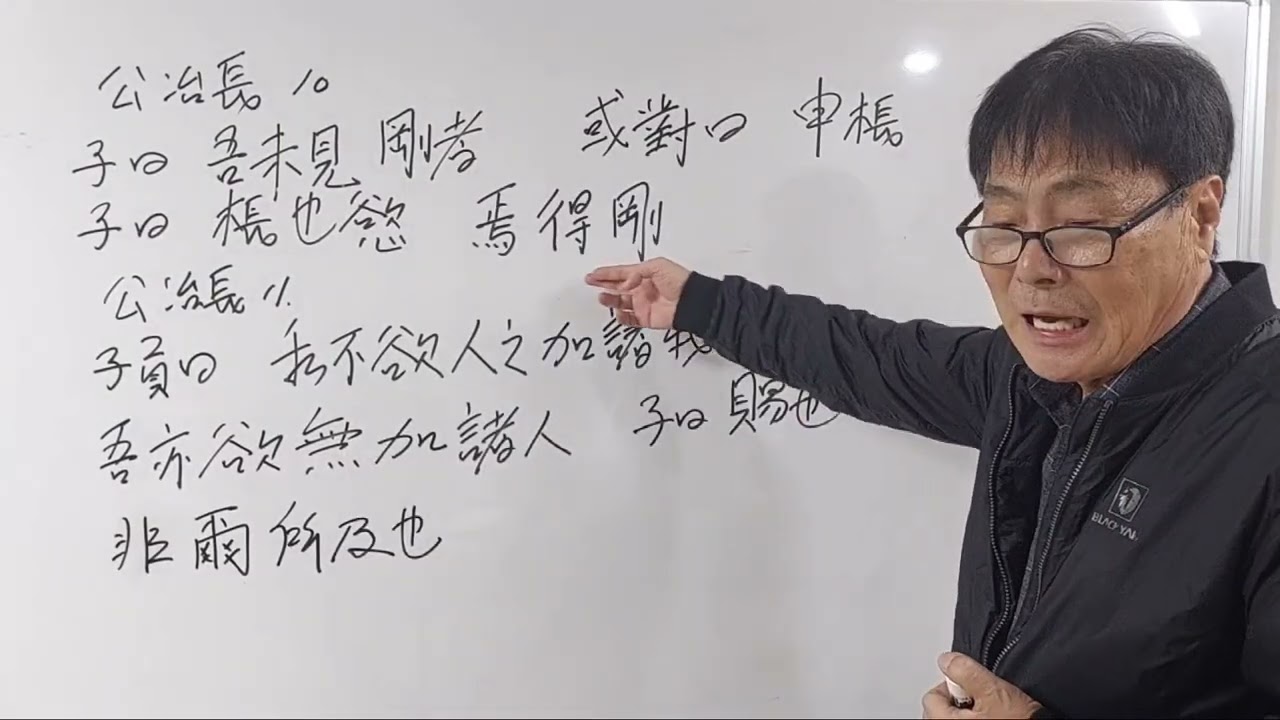 公冶長 10
子曰 吾未見 剛者 或對曰 申棖
子曰 棖也慾 焉得剛
公冶長 11
子貢曰 我不欲人之加諸我
吾亦欲無加諸人 子曰 賜也
非爾所及也
BLACK YAK